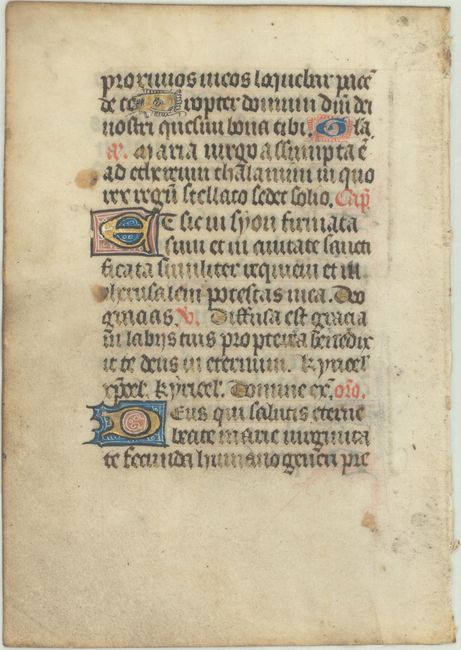 proximos meos loquebar pacē
de te Propter domum dñi dei
nostri quesiui bona tibi. Glā
añ. Maria uirgo assumpta ē
ad ethereum thalamum in quo
rex regū stellato sedet solio. Cap̄
ET sic in syon firmata
sum et in ciuitate sancti
ficata similiter requieui et in
iherusalem potestas mea. Deo
gracias. v. Diffusa est gracia
in labijs tuis propterea benedix
it te deus in eternum. Kyriel
xp̄el. Kyriel. Domine ex̄. oro.
DEus qui salutis eterne
beate marie uirginita
te fecunda humano generi pre